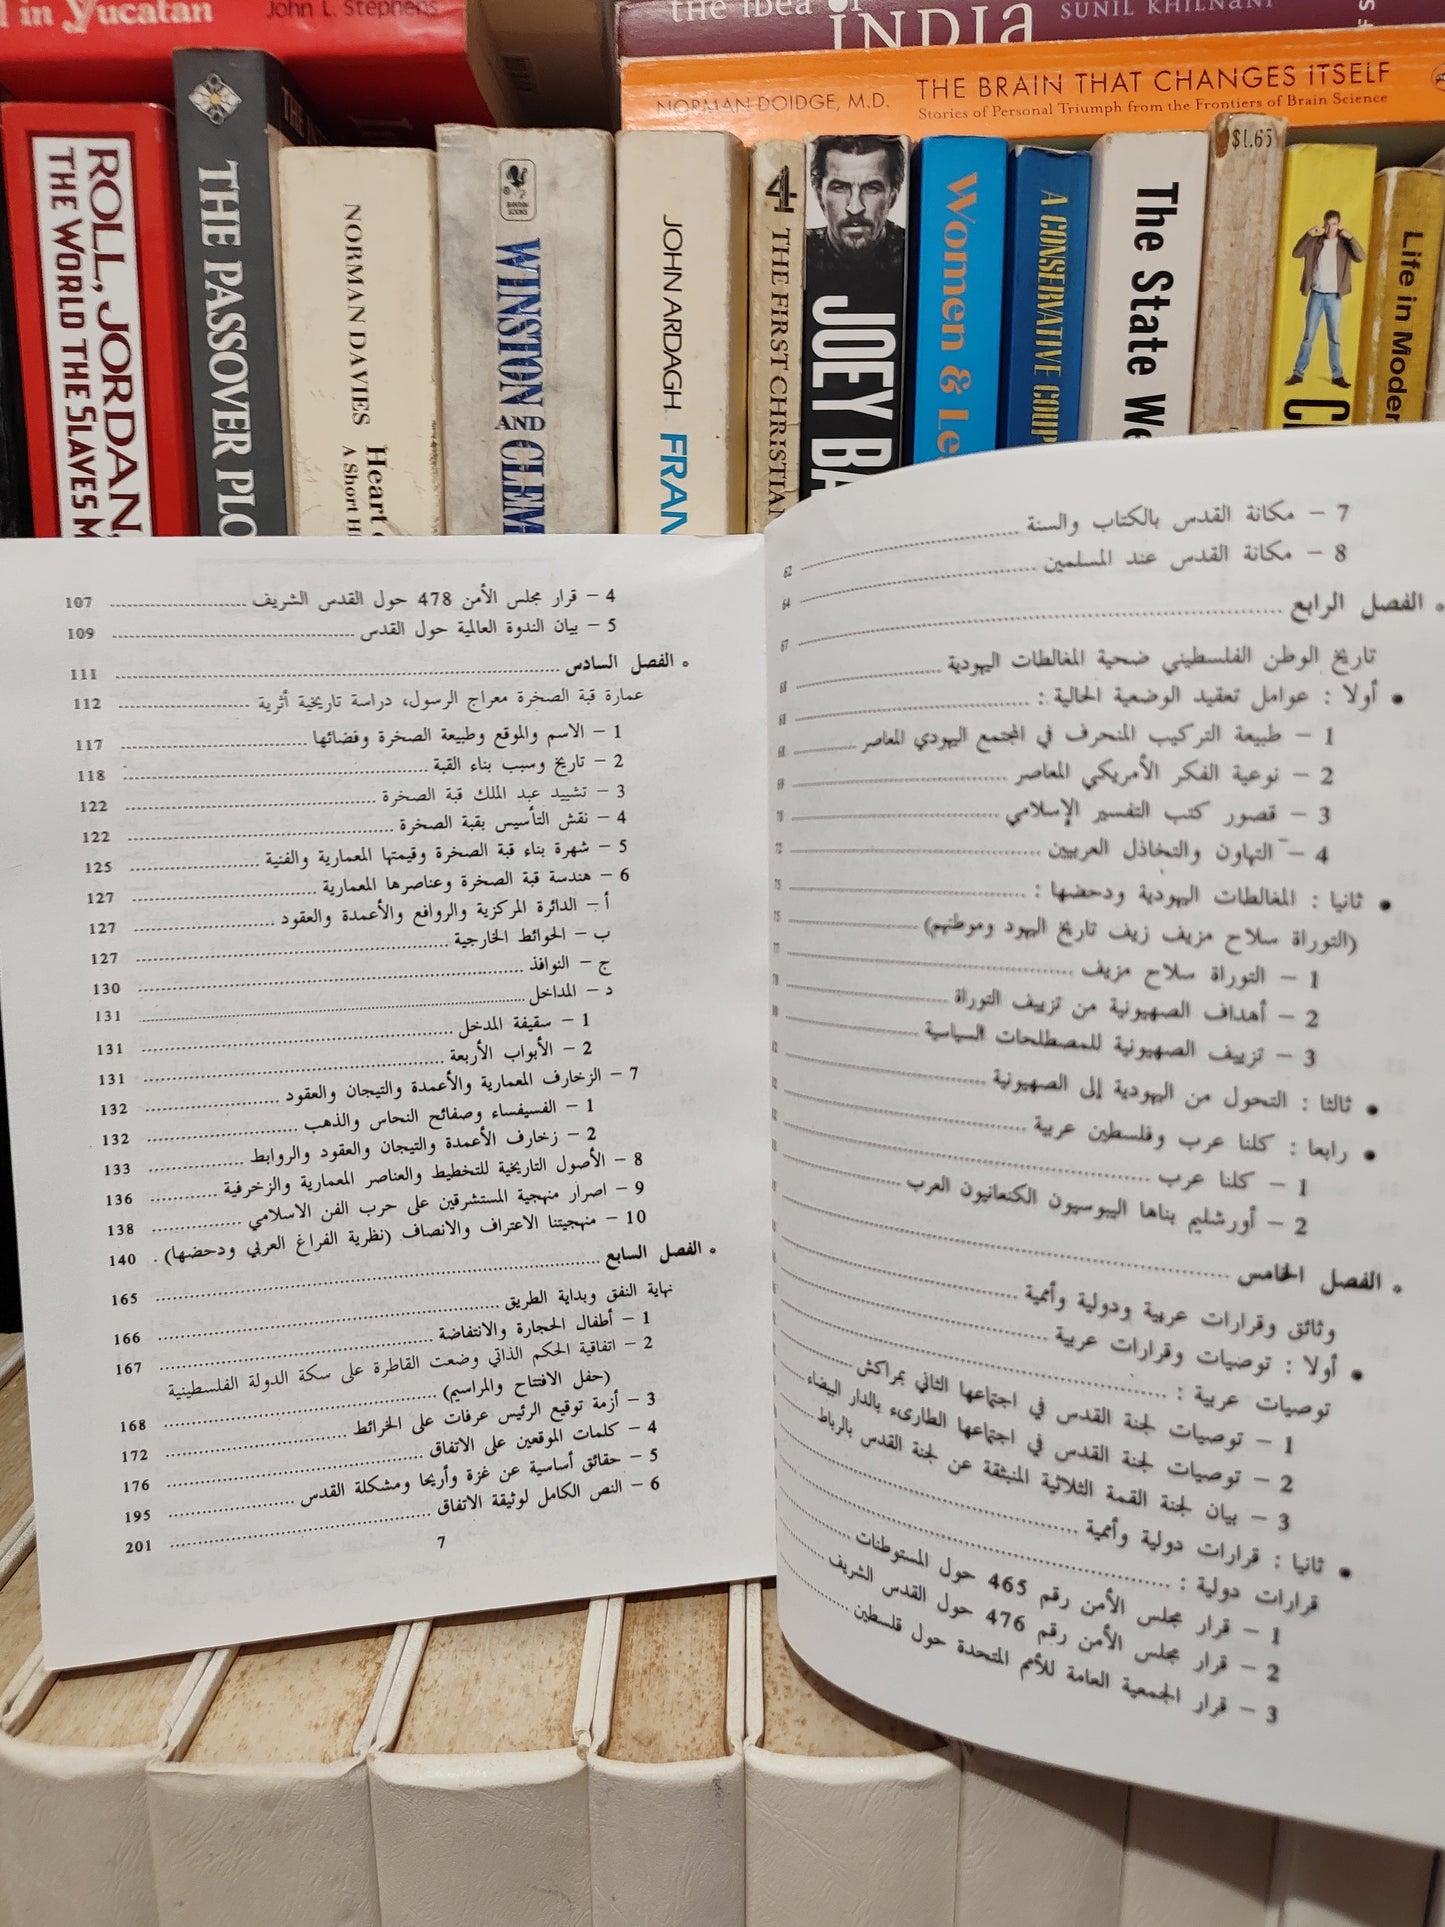 d in Yucatan
John L. Stephens
the idea of
INDIA
SUNIL KHILNANI
NORMAN DOIDGE, M.D.
THE BRAIN THAT CHANGES ITSELF
Stories of Personal Triumph from the Frontiers of Brain Science
ROLL, JORDAN,
THE WORLD THE SLAVES M
THE PASSOVER PLO
NORMAN DAVIES
Heart
A Short Hi
BANTAM BOOKS
WINSTON AND CLEM
JOHN ARDAGH
FRAN
4
THE FIRST CHRISTIAN
JOEY BA
Women & Le
A CONSERVATIVE COUP
The State We
$1.65
Life in Moder
7 – مكانة القدس بالكتاب والسنة 62
8 – مكانة القدس عند المسلمين 64
• الفصل الرابع 67
تاريخ الوطن الفلسطيني ضحية المغالطات اليهودية 68
• أولا : عوامل تعقيد الوضعية الحالية : 68
1 – طبيعة التركيب المنحرف في المجتمع اليهودي المعاصر 68
2 – نوعية الفكر الأمريكي المعاصر 69
3 – قصور كتب التفسير الإسلامي
4 – التهاون والتخاذل العربيين
• ثانيا : المغالطات اليهودية ودحضها :
(التوراة سلاح مزيف زيف تاريخ اليهود وموطنهم)
1 – التوراة سلاح مزيف
2 – أهداف الصهيونية من تزييف التوراة
3 – تزييف الصهيونية للمصطلحات السياسية
• ثالثا : التحول من اليهودية إلى الصهيونية
• رابعا : كلنا عرب وفلسطين عربية
1 – كلنا عرب
2 – أورشليم بناها اليبوسيون الكنعانيون العرب
• الفصل الخامس
وثائق وقرارات عربية ودولية وأممية
• أولا : توصيات وقرارات عربية
توصيات عربية :
1 – توصيات لجنة القدس في اجتماعها الثاني بمراكش
2 – توصيات لجنة القدس في اجتماعها الطارىء بالدار البيضاء
3 – بيان لجنة القمة الثلاثية المنبثقة عن لجنة القدس بالرباط
• ثانيا : قرارات دولية وأممية
قرارات دولية :
1 – قرار مجلس الأمن رقم 465 حول المستوطنات
2 – قرار مجلس الأمن رقم 476 حول القدس الشريف
3 – قرار الجمعية العامة للأمم المتحدة حول فلسطين
4 – قرار مجلس الأمن 478 حول القدس الشريف 107
5 – بيان الندوة العالمية حول القدس 109
• الفصل السادس 111
عمارة قبة الصخرة معراج الرسول، دراسة تاريخية أثرية 112
1 – الاسم والموقع وطبيعة الصخرة وفضائها 117
2 – تاريخ وسبب بناء القبة 118
3 – تشييد عبد الملك قبة الصخرة 122
4 – نقش التأسيس بقبة الصخرة 122
5 – شهرة بناء قبة الصخرة وقيمتها المعمارية والفنية 125
6 – هندسة قبة الصخرة وعناصرها المعمارية 127
أ – الدائرة المركزية والروافع والأعمدة والعقود 127
ب – الحوائط الخارجية 127
ج – النوافذ 130
د – المداخل 131
1 – سقيفة المدخل 131
2 – الأبواب الأربعة 131
7 – الزخارف المعمارية والأعمدة والتيجان والعقود 132
1 – الفسيفساء وصفائح النحاس والذهب 132
2 – زخارف الأعمدة والتيجان والعقود والروابط 133
8 – الأصول التاريخية للتخطيط والعناصر المعمارية والزخرفية 136
9 – اصرار منهجية المستشرقين على حرب الفن الاسلامي 138
10 – منهجيتنا الاعتراف والانصاف (نظرية الفراغ العربي ودحضها) . 140
• الفصل السابع 165
نهاية النفق وبداية الطريق 166
1 – أطفال الحجارة والانتفاضة 167
2 – اتفاقية الحكم الذاتي وضعت القاطرة على سكة الدولة الفلسطينية
(حفل الافتتاح والمراسيم) 168
3 – أزمة توقيع الرئيس عرفات على الخرائط 172
4 – كلمات الموقعين على الاتفاق 176
5 – حقائق أساسية عن غزة وأريحا ومشكلة القدس 195
6 – النص الكامل لوثيقة الاتفاق 201
7